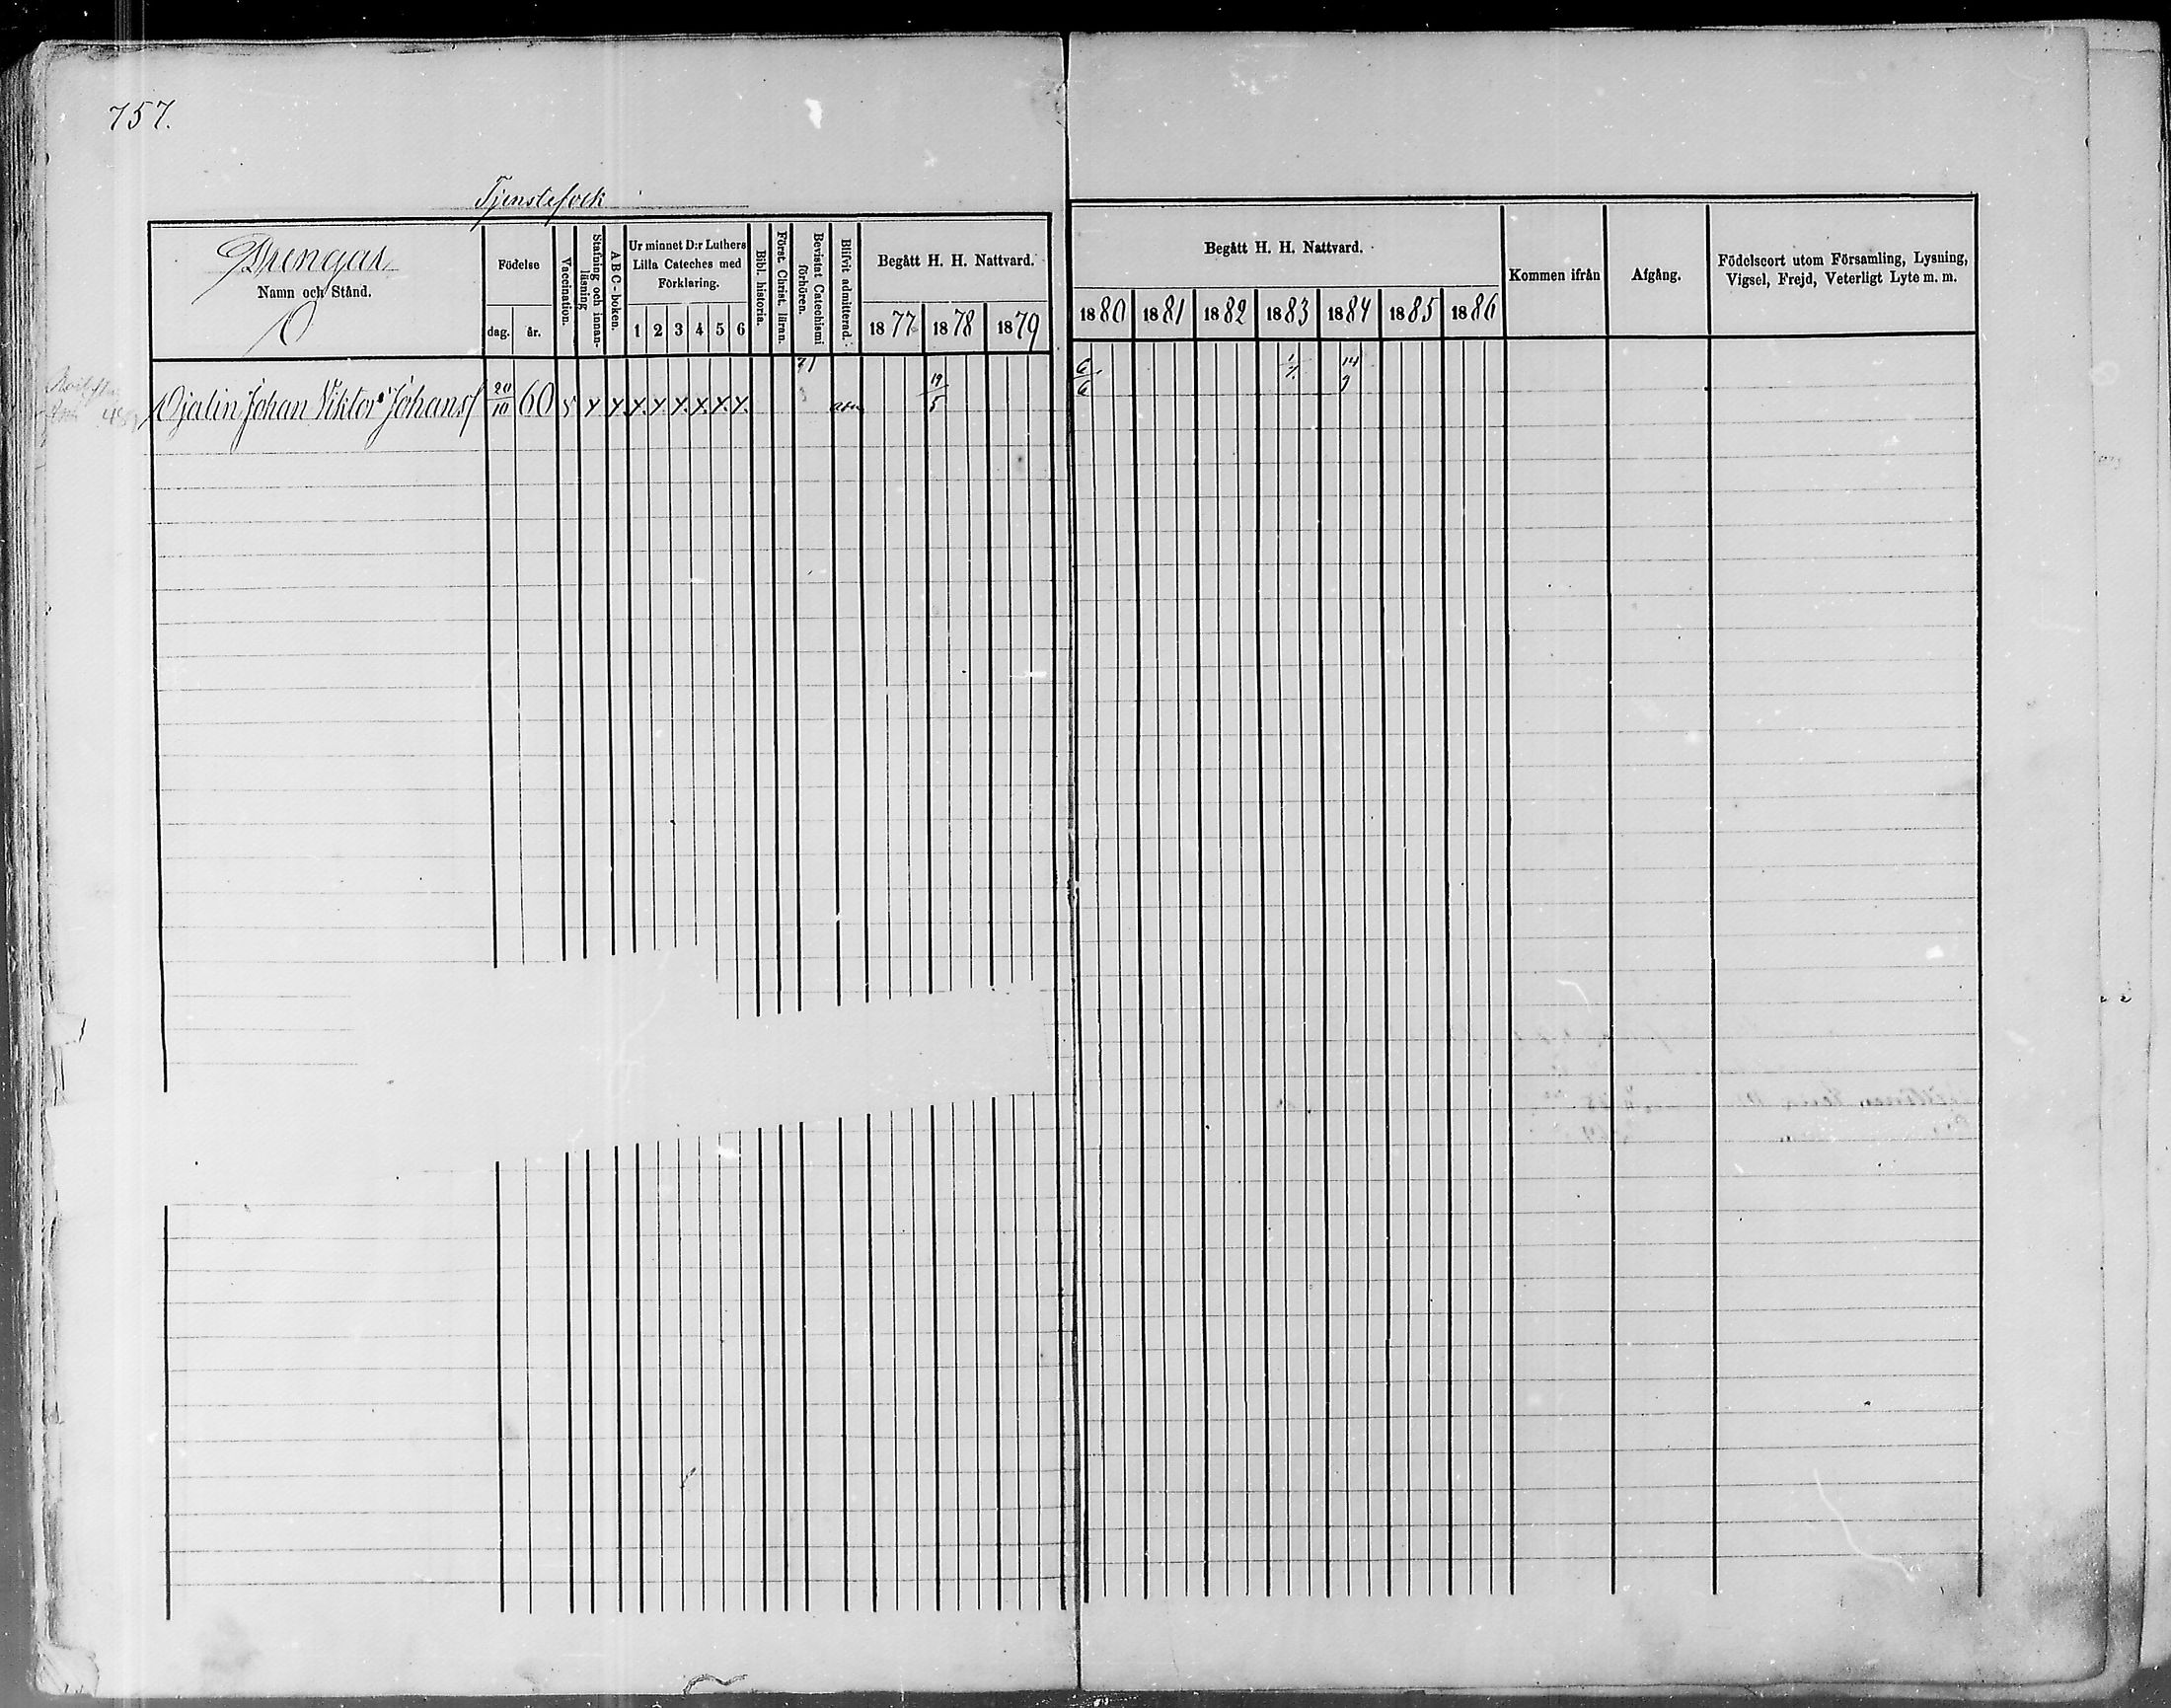 757.
Tjenstefolk
Drengar
Namn och Stånd.
O
Födelse
dag. år.
Vaccination.
Stafning och innan-läsning
A B C-boken.
Ur minnet D:r Luthers
Lilla Cateches med
Förklaring.
1 2 3 4 5 6
Bibl. historia.
Först. Christ. läran.
Bevistat Catechismi förhören.
Blifvit admitterad.
Begått H. H. Nattvard.
1877 1878 1879
Begått H. H. Nattvard.
1880 1881 1882 1883 1884 1885 1886
Kommen ifrån
Afgång.
Födelseort utom Församling, Lysning,
Vigsel, Frejd, Veterligt Lyte m. m.
Ojalin Johan Viktor Johansf 20/10 60 s y y x x x x x x 19/5 6/6 14/9